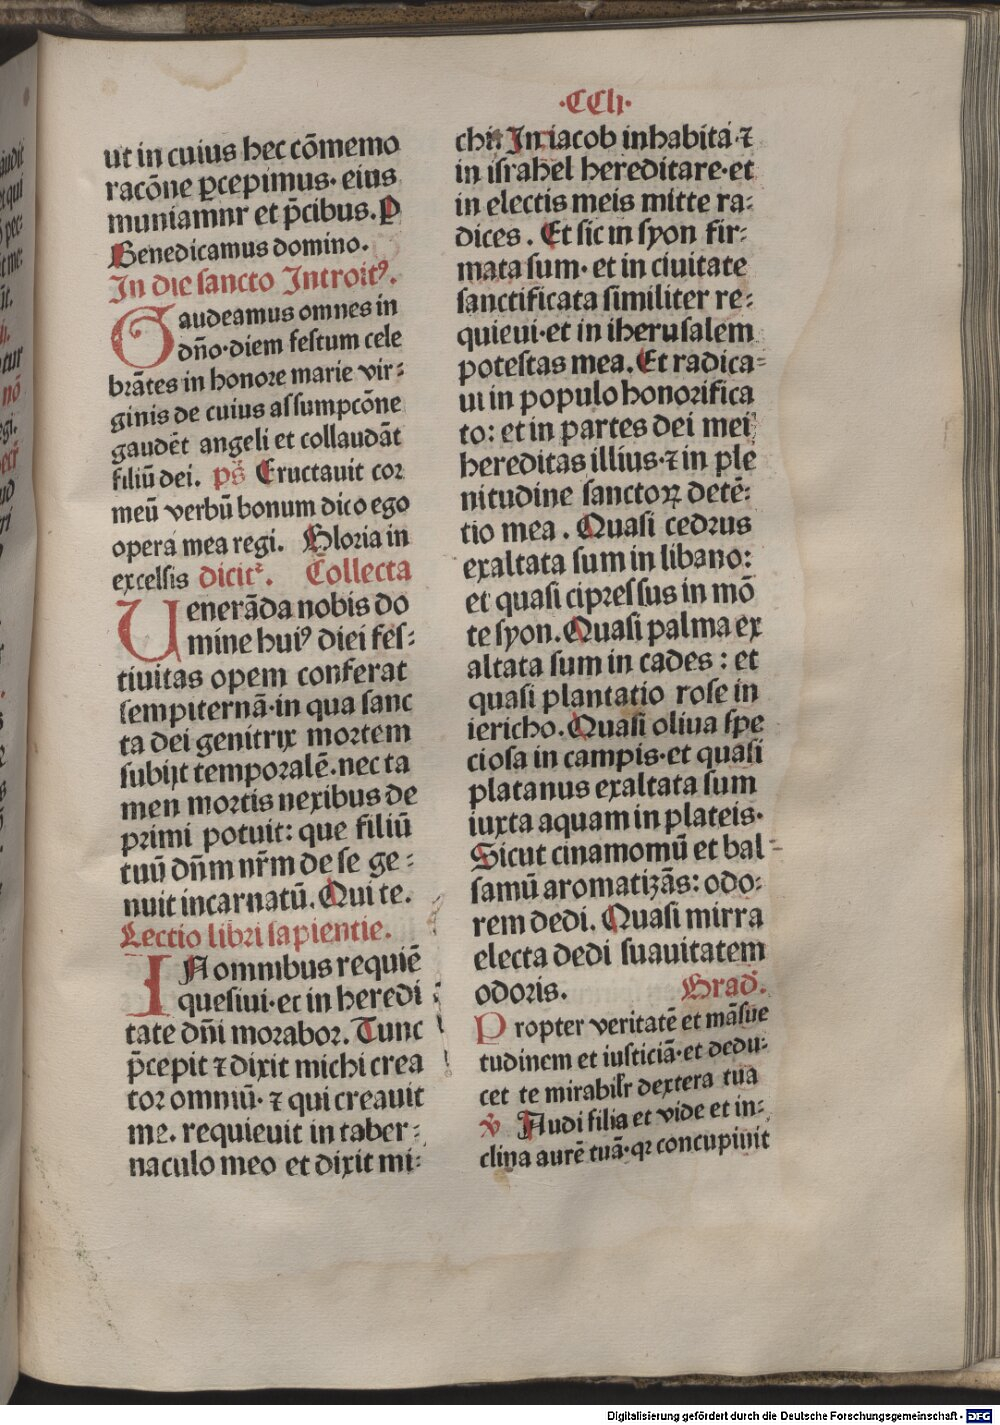 ·CClj·
ut in cuius hec cõmemo
racõne ꝑcepimus· eius
muniamnr et p̃cibus. P
Benedicamus domino.
In die sancto Introitꝰ.
Gaudeamus omnes in
dño·diem festum cele
brãtes in honore marie vir⸗
ginis de cuius assumpcõne
gaudẽt angeli et collaudãt
filiũ dei. ps̃ Eructauit cor
meũ verbũ bonum dico ego
opera mea regi. Gloria in
excelsis dicit᷑. Collecta
Uenerãda nobis do
mine huiꝰ diei fes⸗
tiuitas opem conferat
sempiternã·in qua sanc
ta dei genitrix mortem
subijt temporalẽ.nec ta
men mortis nexibus de
primi potuit: que filiũ
tuũ dñm nr̃m de se ge⸗
nuit incarnatũ. Qui te.
Lectio libri sapientie.
IN omnibus requiẽ
quesiui·et in heredi
tate dñi morabor. Tunc
p̃cepit ⁊ dixit michi crea
tor omniũ· ⁊ qui creauit
me. requieuit in taber⸗
naculo meo et dixit mi⸗
chi: In iacob inhabita·⁊
in israhel hereditare·et
in electis meis mitte ra⸗
dices. Et sic in syon fir⸗
mata sum· et in ciuitate
sanctificata similiter re⸗
quieui·et in iherusalem
potestas mea. Et radica⸗
ui in populo honorifica
to: et in partes dei mei
hereditas illius·⁊ in ple
nitudine sanctoꝝ detẽ⸗
tio mea. Quasi cedrus
exaltata sum in libano:
et quasi cipressus in mõ
te syon. Quasi palma ex
altata sum in cades : et
quasi plantatio rose in
iericho. Quasi oliua spe
ciosa in campis·et quasi
platanus exaltata sum
iuxta aquam in plateis·
Sicut cinamomũ et bal⸗
samũ aromatizãs: odo⸗
rem dedi. Quasi mirra
electa dedi suauitatem
odoris. Grad̃.
Propter veritatẽ et mãsue
tudinem et iusticiã·et dedu⸗
cet te mirabilr̃ dextera tua
v̾ Audi filia et vide et in⸗
clina aurẽ tuã·qꝛ concupiuit
Digitalisierung gefördert durch die Deutsche Forschungsgemeinschaft - DFG